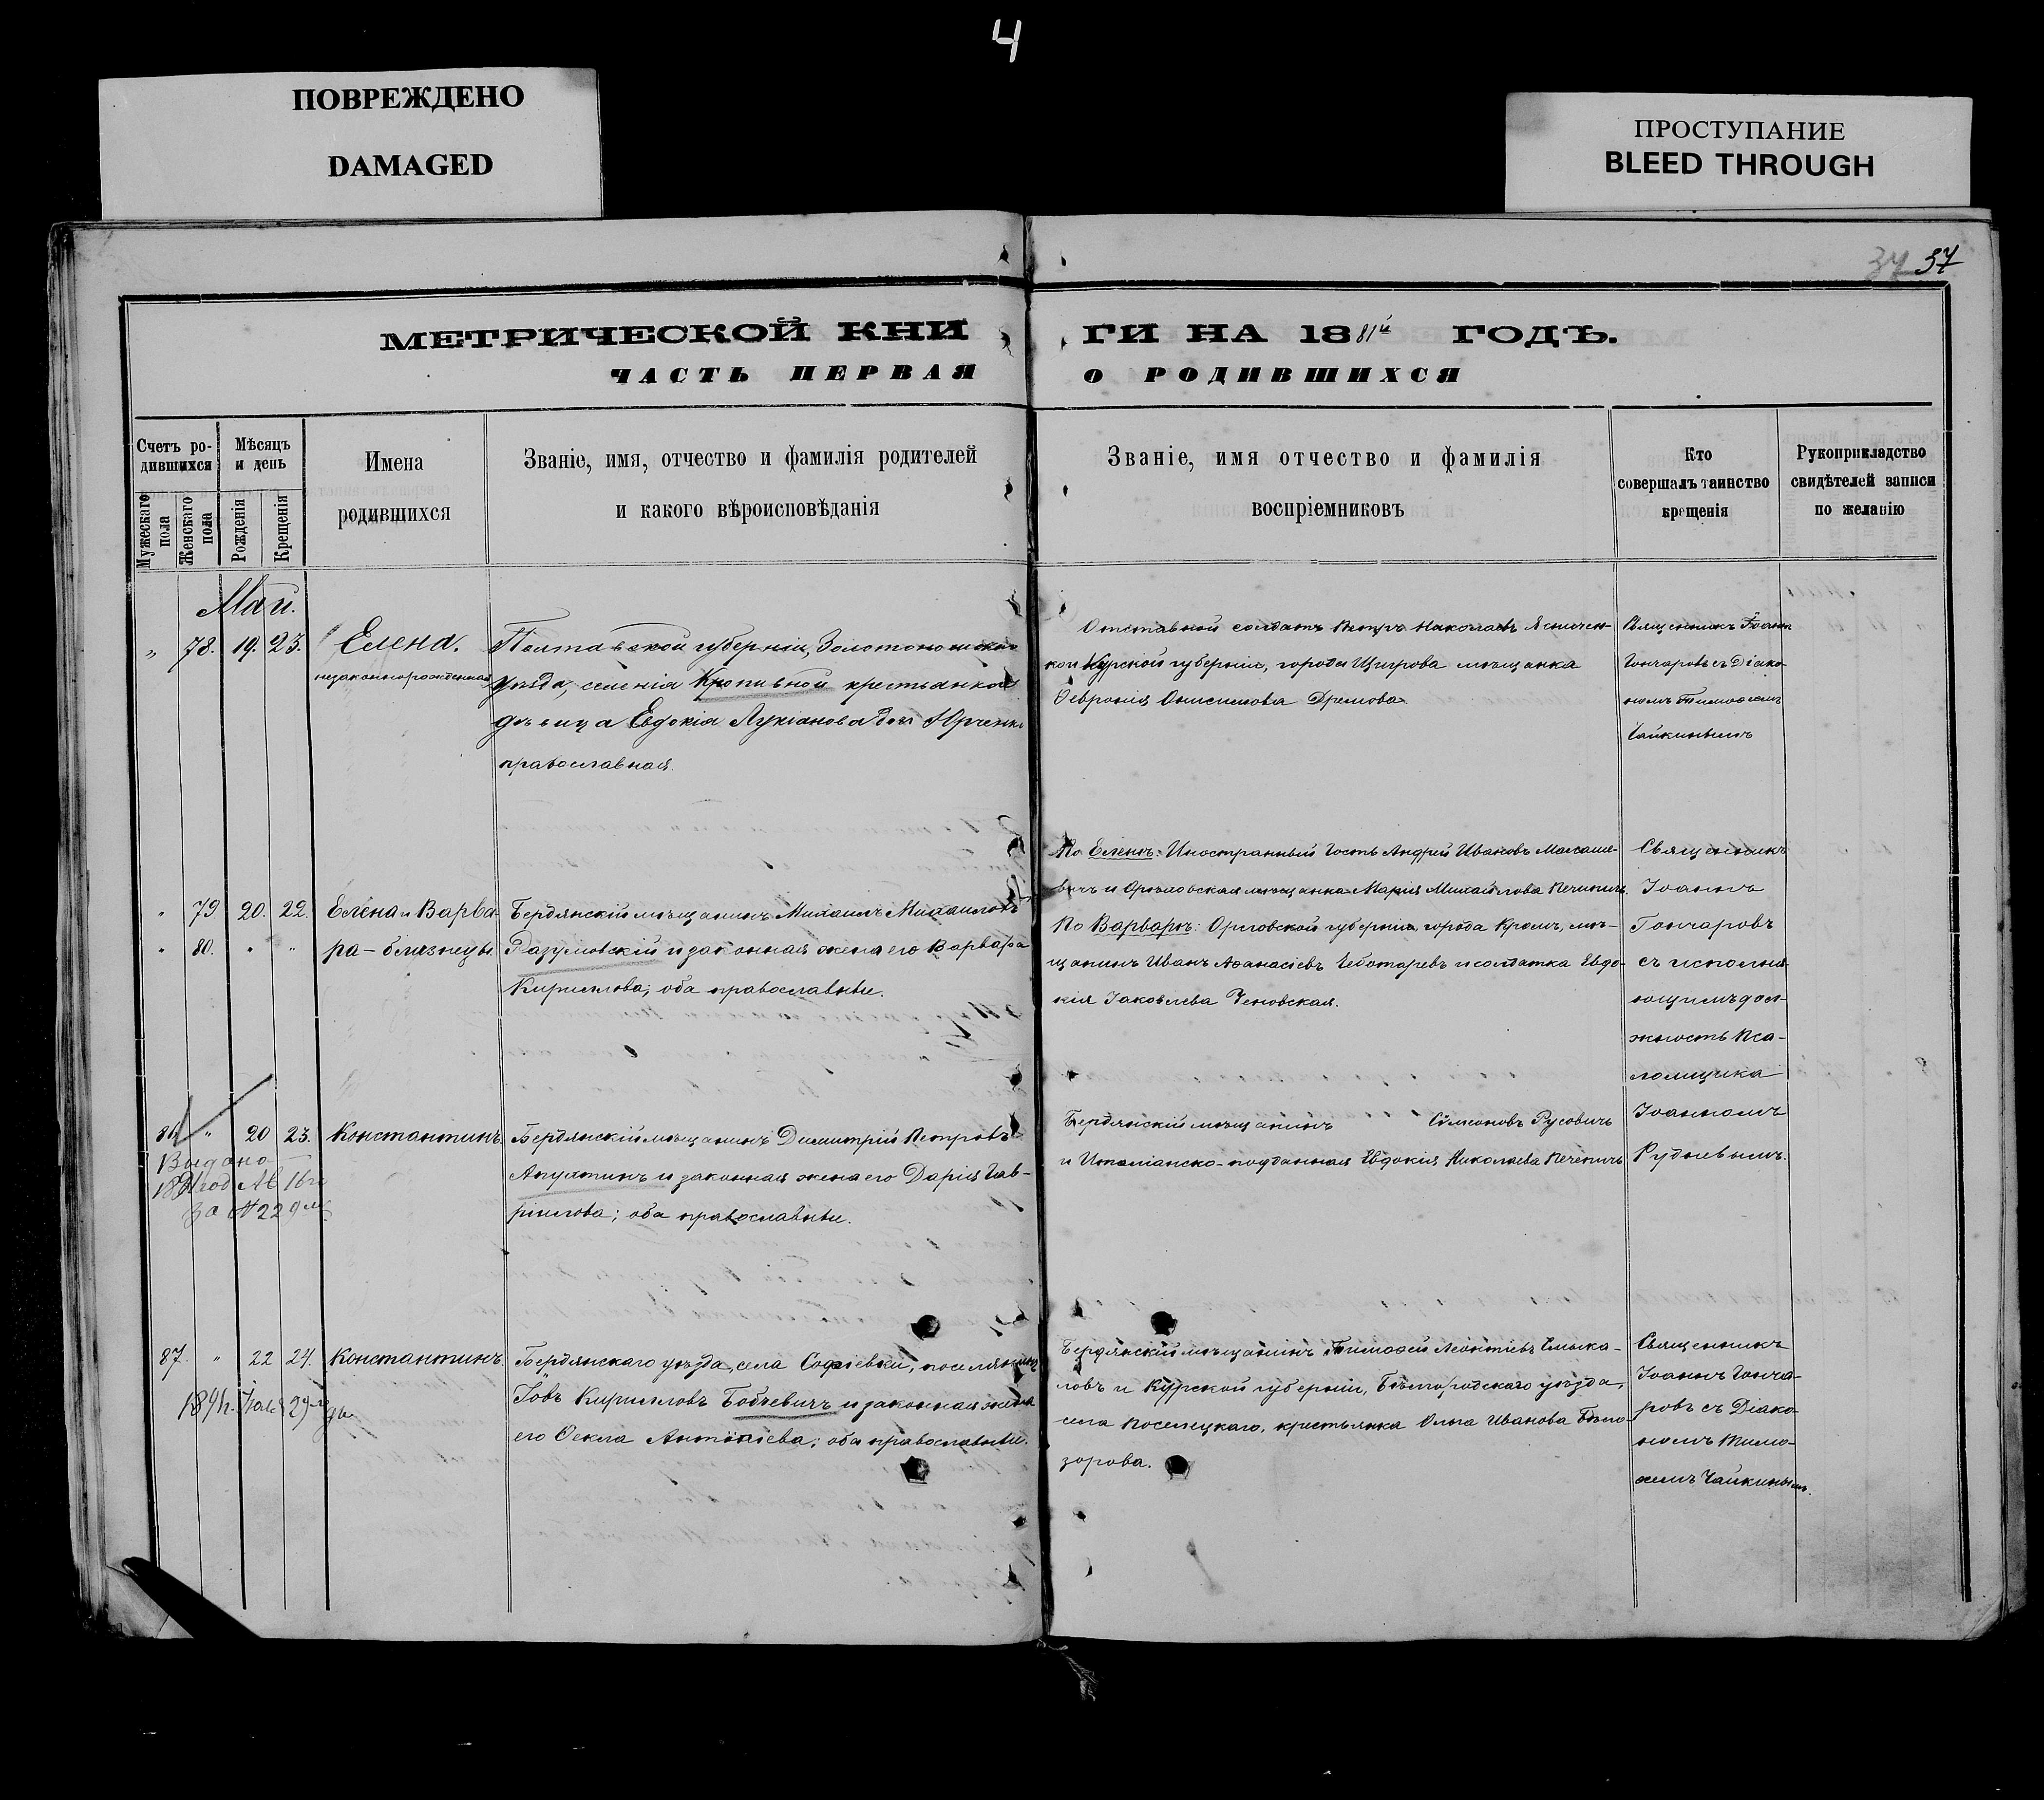 4
ПОВРЕЖДЕНО
DAMAGED
ПРОСТУПАНИЕ
BLEED THROUGH
37 37
МЕТРИЧЕСКОЙ КНИ
ГИ НА 1881й ГОДЪ.
ЧАСТЬ ПЕРВАЯ
О РОДИВШИХСЯ
Счетъ ро-
дившихся
Мужескаго пола
Женскаго пола
Мѣсяцъ
и день
Рожденія
Крещенія
Имена
родившихся
Званіе, имя, отчество и фамилія родителей
и какого вѣроисповѣданія
Званіе, имя отчество и фамилія
воспріемниковъ
Кто
совершалъ таинство
крещенія
Рукоприкладство
свидѣтелей записи
по желанію
Май.
„ 78. 19. 23. Елена.
незаконнорожденная
Полтавской губерніи, Золотоношскаго
уѣзда, селенія Кропивной крестьянка
дѣвица Евдокія Лукіанова Юрченко
православная.
Отставной солдатъ Петръ Николаевъ
Курской губерніи, города Щигрова мѣщанка
Ѳевронія Онисимова Дремова.
Священникъ Іоаннъ
Гончаровъ съ Діако-
номъ Тимоѳеемъ
Чайкинымъ
„ 79 20. 22. Елена и Варва-
„ 80. „ „ ра - близнецы.
Бердянскій мѣщанинъ Михаилъ Михаиловъ
Разумовскій и законная жена его Варвара
Кириллова; оба православные.
По Еленѣ: Иностранный Гость Андрей Ивановъ
вичъ и Орѣховская мѣщанка Марія Михайлова Печеничъ.
По Варварѣ: Орловской губерніи, города Кромъ, мѣ-
щанинъ Иванъ Аѳанасіевъ Чеботаревъ и солдатка Евдо-
кія Іаковлева
Священникъ
Іоаннъ
Гончаровъ
съ исполня-
ющимъ дол-
жность Пса-
ломщика
Іоанномъ
Рудневымъ.
86 „ 20 23. Константинъ.
Выдано
за № 229
Бердянскій мѣщанинъ Димитрій Петровъ
Апухтинъ и законная жена его Дарія Гав-
ріилова; оба православные.
Бердянскій мѣщанинъ Симеоновъ Русовичъ
и Италіанско-подданная Евдокія Николаева Печеничъ
87. „ 22 24. Константинъ.
Бердянскаго уѣзда, села Софіевки, поселянинъ
Іовъ Кирилловъ Бобчевичъ и законная жена
его Ѳекла Антоніева; оба православные.
Бердянскій мѣщанинъ Тимоѳей Леонтіевъ Смыка-
ловъ и Курской губерніи, Бѣлгородскаго уѣзда,
села Поселецкаго, крестьянка Ольга Иванова Бѣло-
зорова.
Священникъ
Іоаннъ Гонча-
ровъ съ Діако-
номъ Тимо-
ѳеемъ Чайкинымъ.